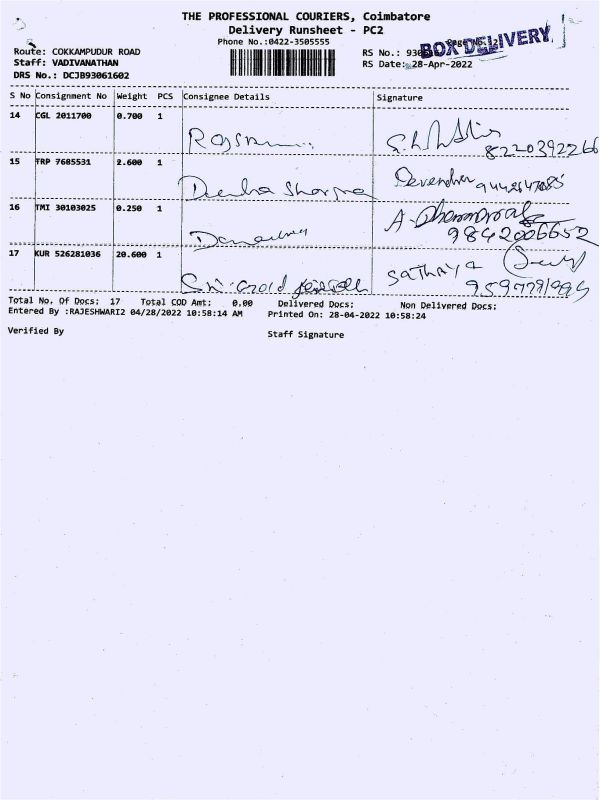 THE PROFESSIONAL COURIERS, Coimbatore
Delivery Runsheet - PC2
Phone No.:0422-3505555
BOX DELIVERY
Route: COKKAMPUDUR ROAD
RS No.: 930
Staff: VADIVANATHAN
RS Date: 28-Apr-2022
DRS No.: DCJB93061602
S No Consignment No Weight PCS Consignee Details Signature
14 CGL 2011700 0.700 1
8220392266
15 TRP 7685531 2.600 1 Sharma Devendra
16 TMI 30103025 0.250 1 A.
9842006652
17 KUR 526281036 20.600 1 Sri Gold SATHAYA
Total No. Of Docs: 17 Total COD Amt: 0.00 Delivered Docs: Non Delivered Docs:
Entered By :RAJESHWARI2 04/28/2022 10:58:14 AM Printed On: 28-04-2022 10:58:24
Verified By Staff Signature